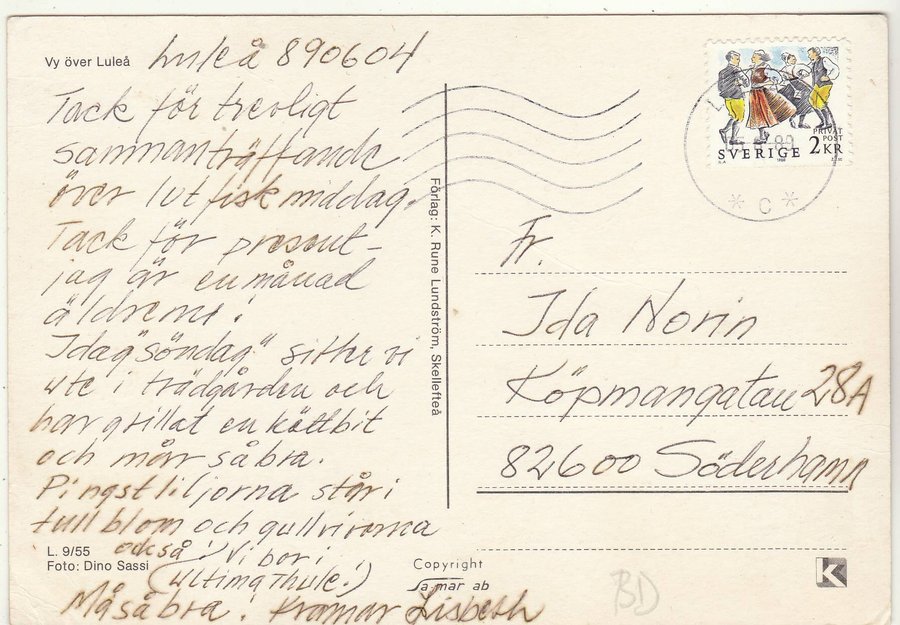 Vy över Luleå
Luleå 890604
Tack för trevligt
sammanträffande
över lutfiskmiddag.
Tack för present-
jag är en månad
äldre nu!
Idag "söndag" sitter vi
ute i trädgården och
har grillat en köttbit
och mår så bra.
Pingstliljorna står i
full blom och gullvivorna
också! Vi bor i
(Ultima Thule!)
Må så bra! Kramar Lisbeth
L. 9/55
Foto: Dino Sassi
Förlag: K. Rune Lundström, Skellefteå
Copyright
Samar ab
PRIVAT
POST
SVERIGE 2 KR
* C *
Fr.
Ida Norin
Köpmangatan 28A
82600 Söderhamn
K
BD